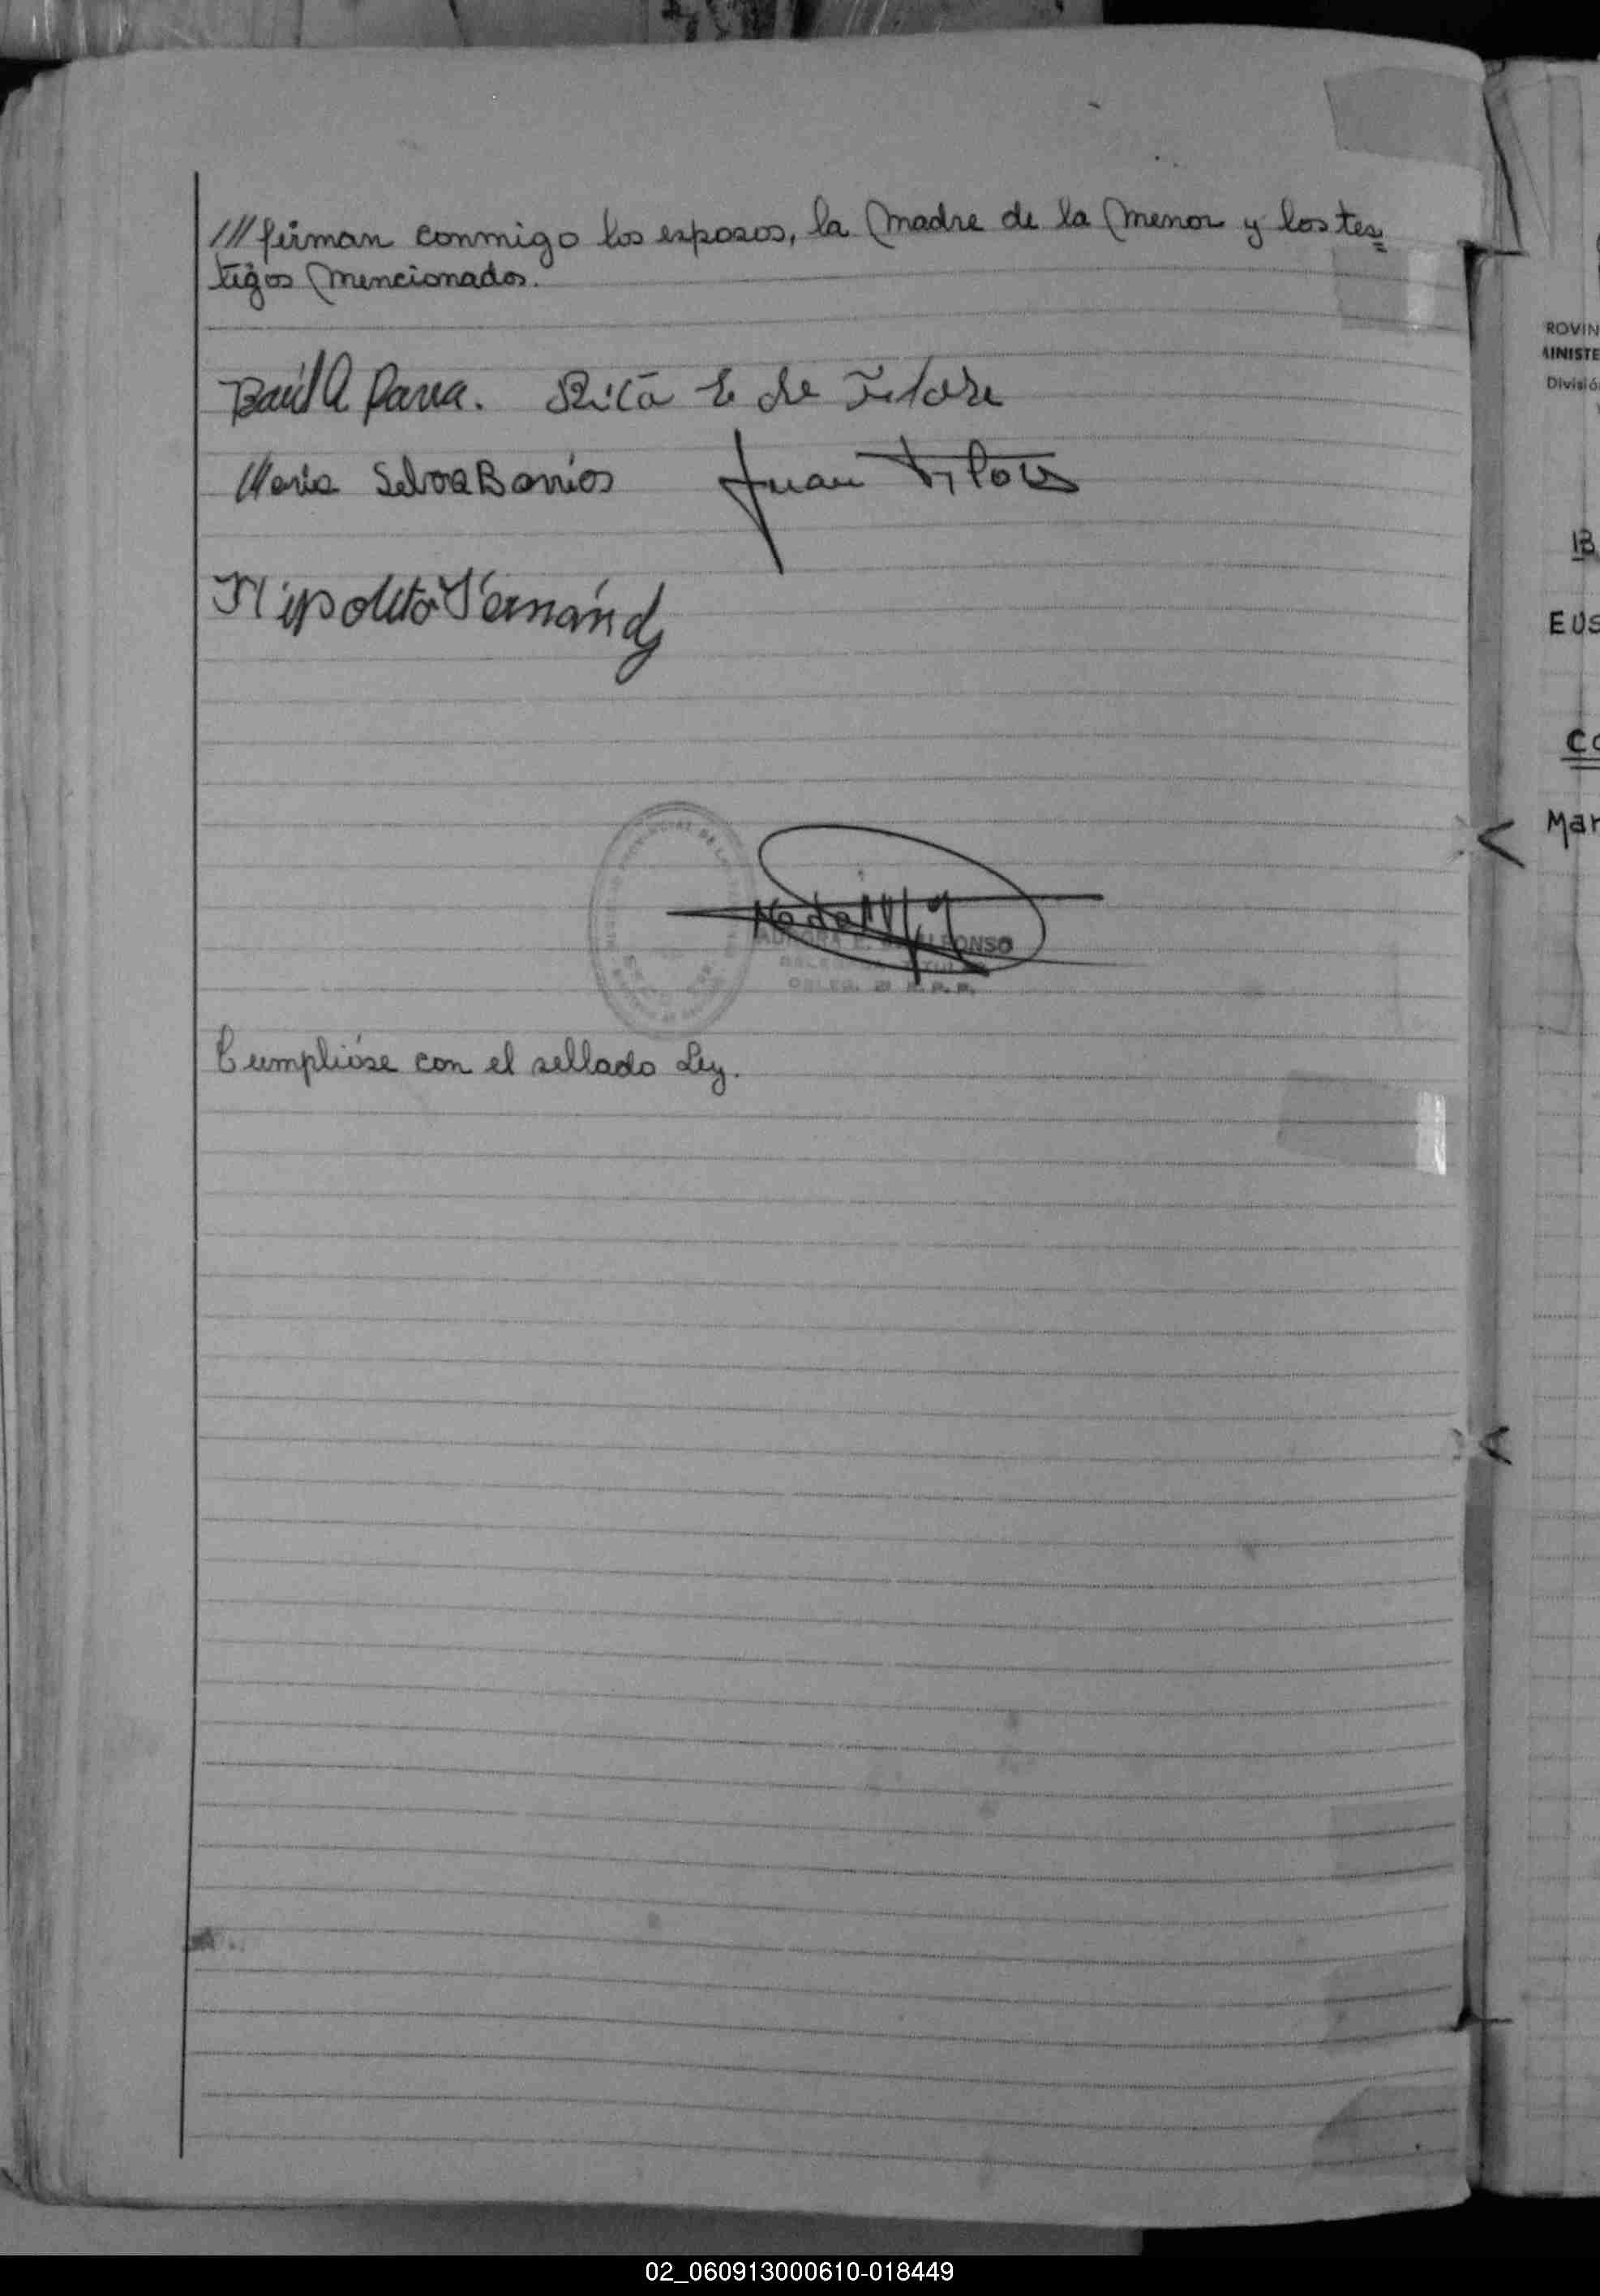 /// firman conmigo los esposos, la Madre de la Menor y los tes=
tigos Mencionados.
Raúl A Parra. Rita E de
Maria Selva Barrios Juan
Hipolito Fernánd
ALFONSO
DELEG. 2ª R. P. P.
Cumplióse con el sellado Ley.
ROVIN
MINISTE
Divisió
EUS
CO
Mar
02_060913000610-018449